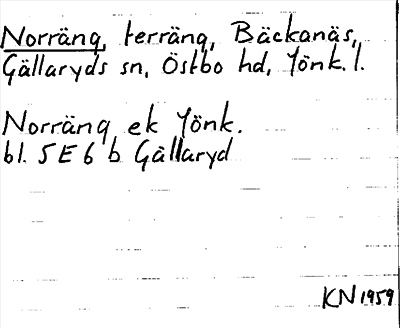 Norräng, terräng, Bäckanäs,
Gällaryds sn, Östbo hd, Jönk. l.
Norräng ek Jönk.
bl. 5E6b Gällaryd
KN 1959